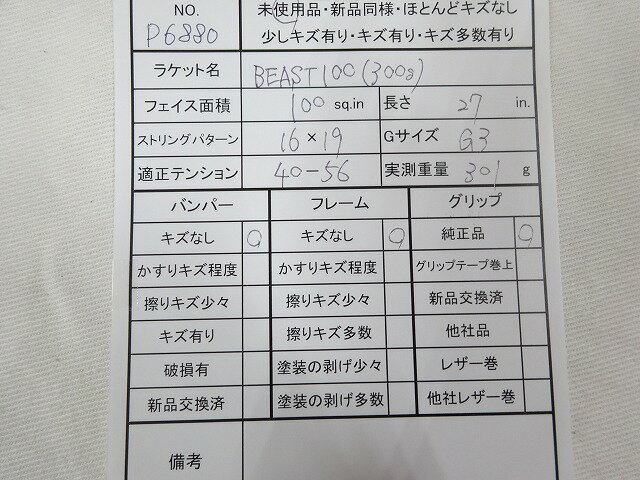 NO. 未使用品・新品同様・ほとんどキズなし
P6880 少しキズ有り・キズ有り・キズ多数有り
ラケット名 BEAST100(300g)
フェイス面積 100 sq.in 長さ 27 in.
ストリングパターン 16×19 Gサイズ G3
適正テンション 40-56 実測重量 301 g
バンパー フレーム グリップ
キズなし ○ キズなし ○ 純正品 ○
かすりキズ程度 かすりキズ程度 グリップテープ巻上
擦りキズ少々 擦りキズ少々 新品交換済
キズ有り 擦りキズ多数 他社品
破損有 塗装の剥げ少々 レザー巻
新品交換済 塗装の剥げ多数 他社レザー巻
備考